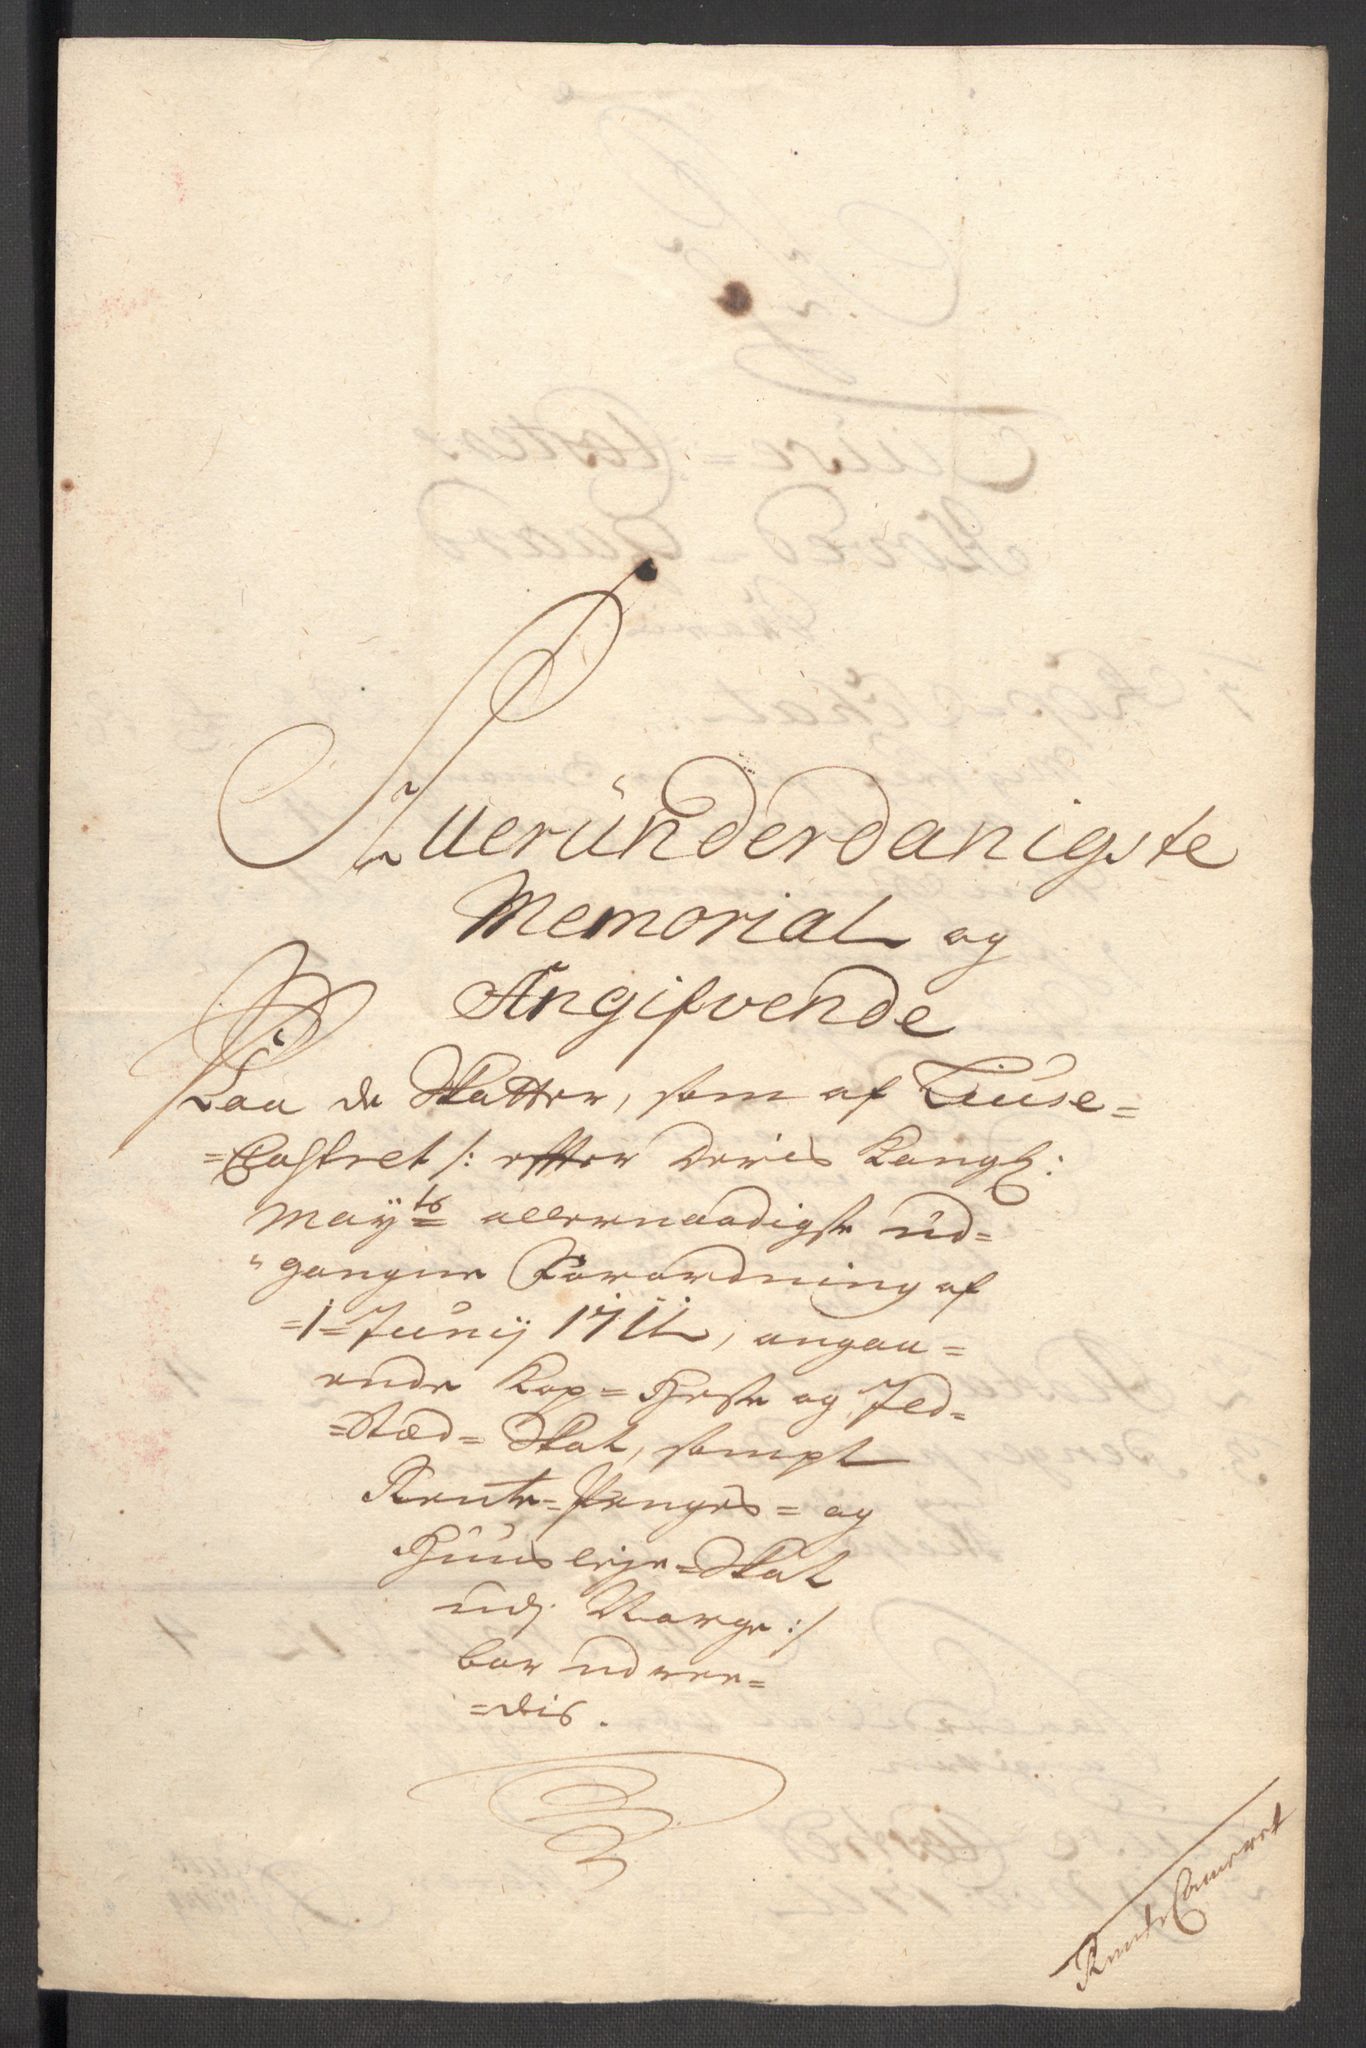 Alleründerdanigste
Memorial og
Angifvende
Paa de Skatter, som af Liuse=
=Closteret /: effter Deris Kongl:
Mayts allernaadigste ud=
"gangne Forordning af
=1= Junij 1711, angaa=
ende Kop= Heste og Ild=
=Stæd= Skat, sampt
Rente= Penges= og
Huus leye= Skat
udj Norge :/
bør udree=
=dis.
Rente Cammeret